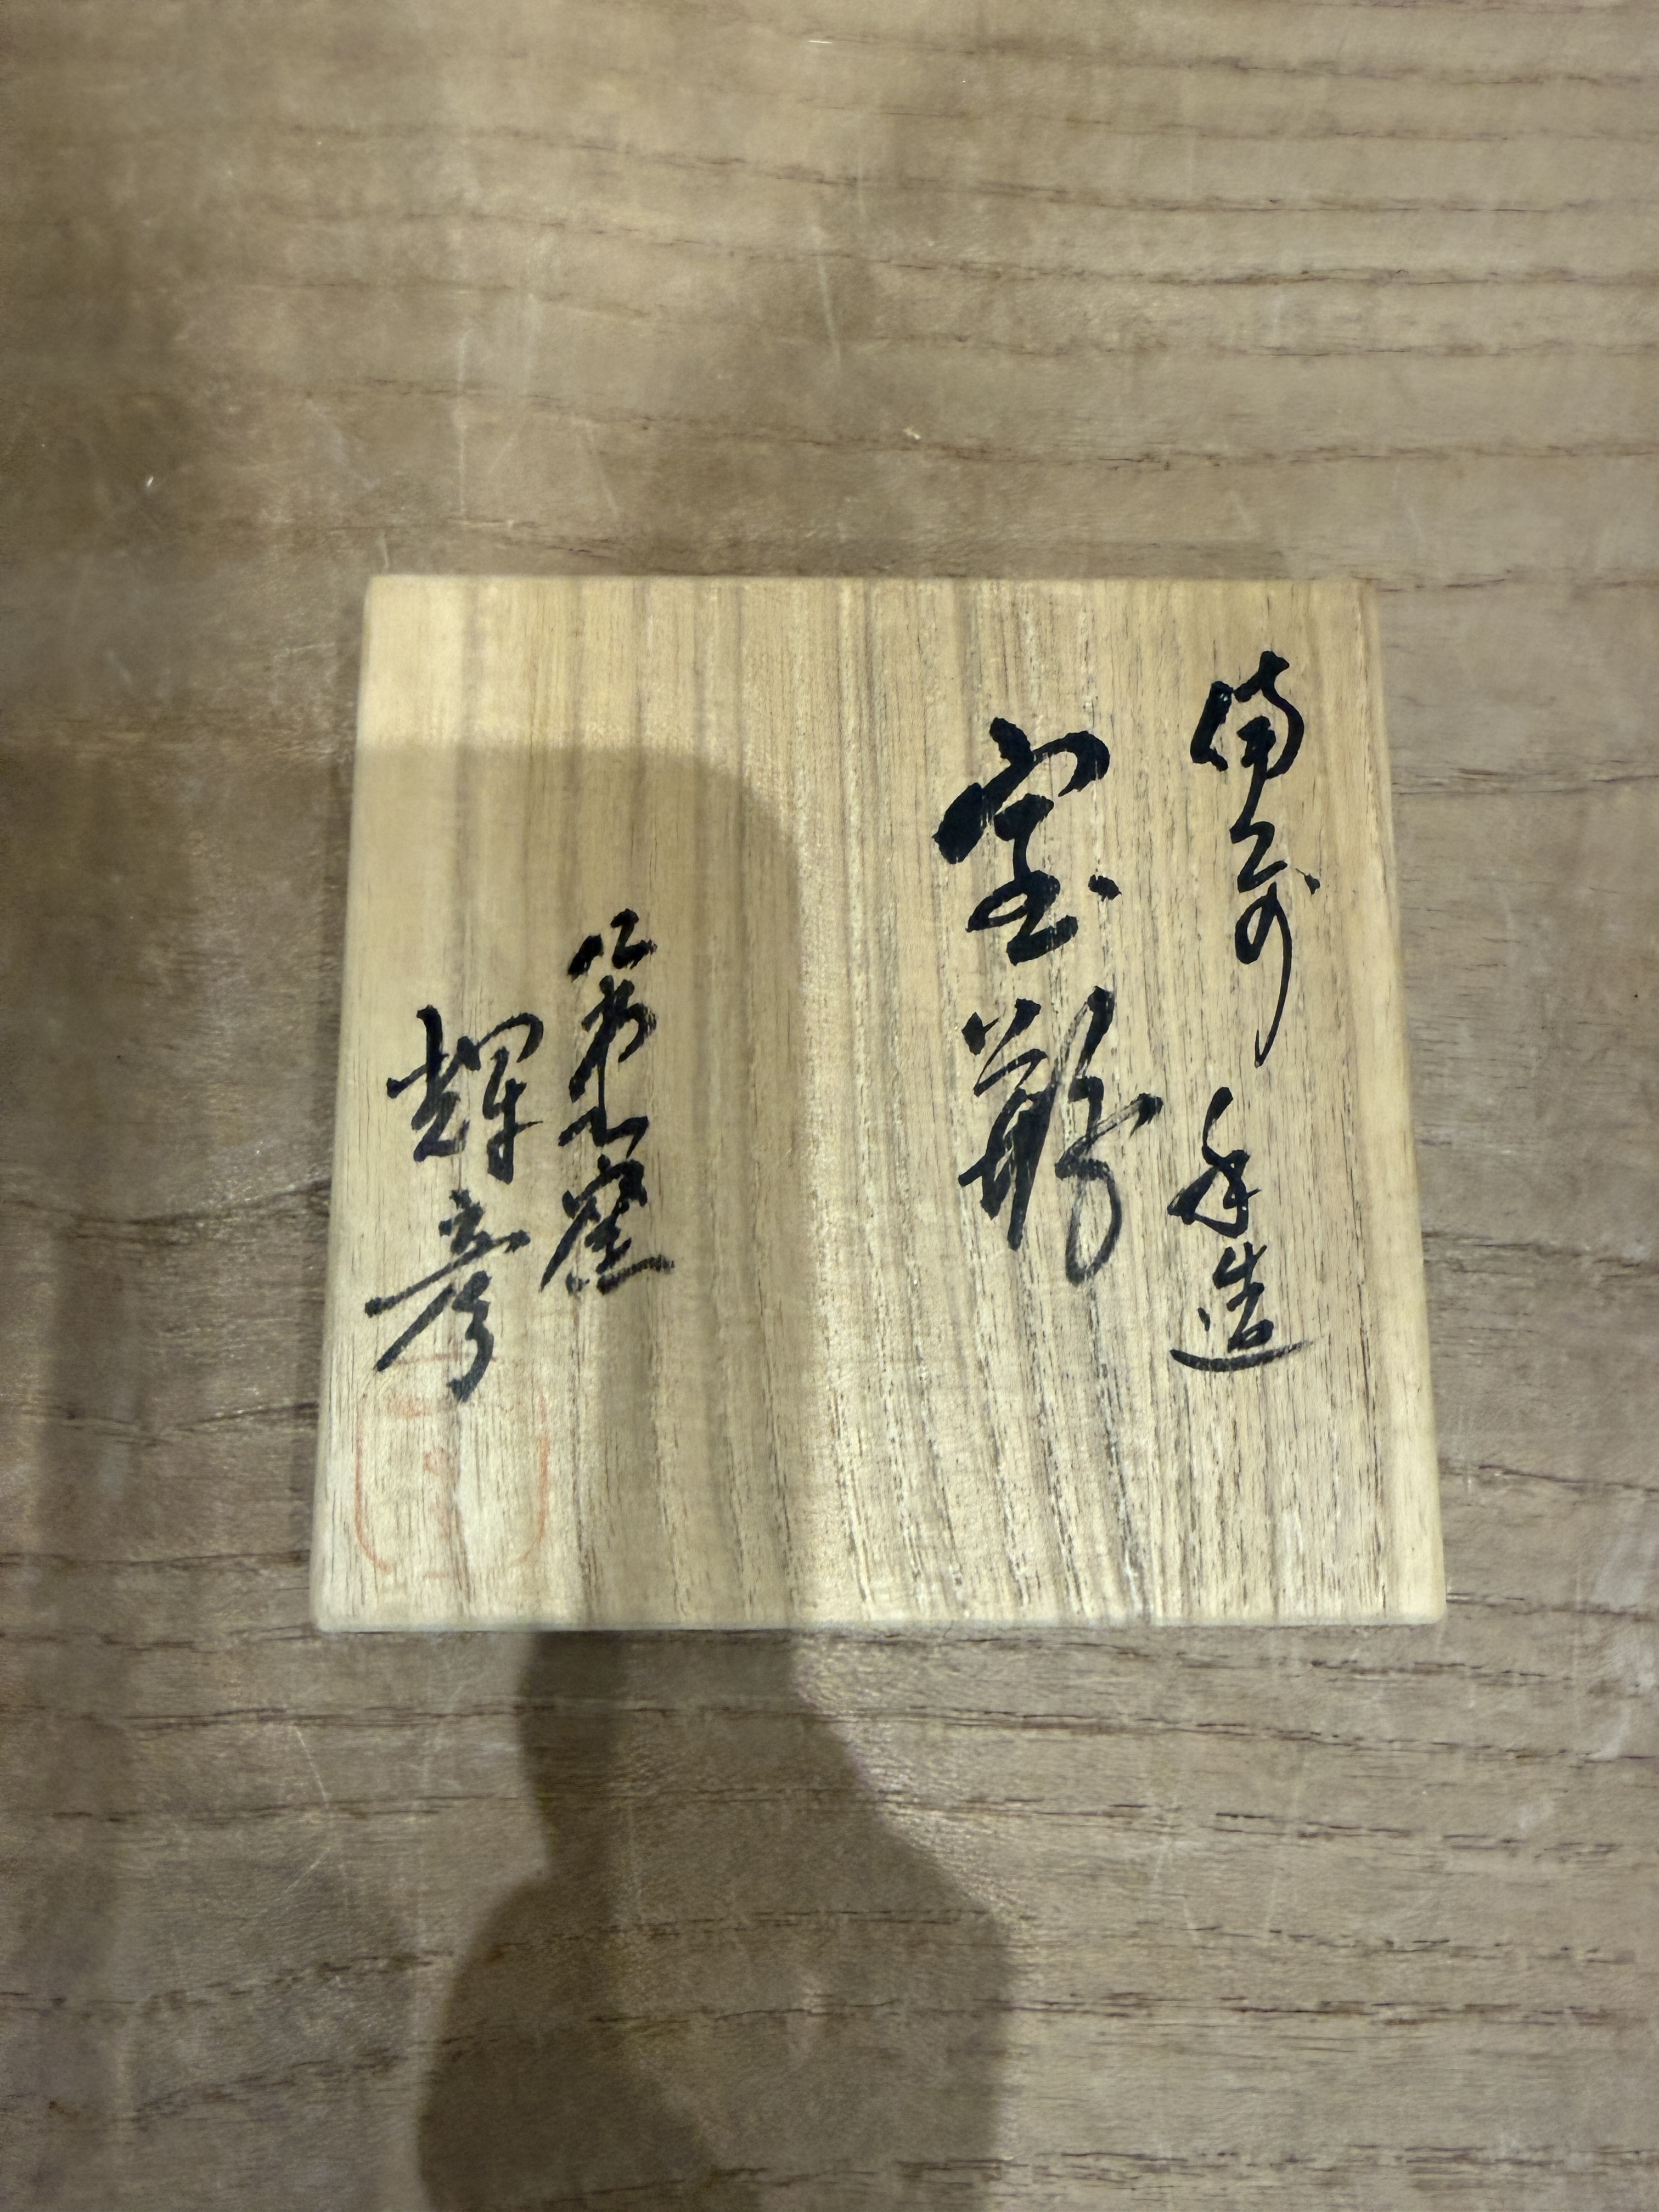 備前 手造
宝瓶
窯
輝彦